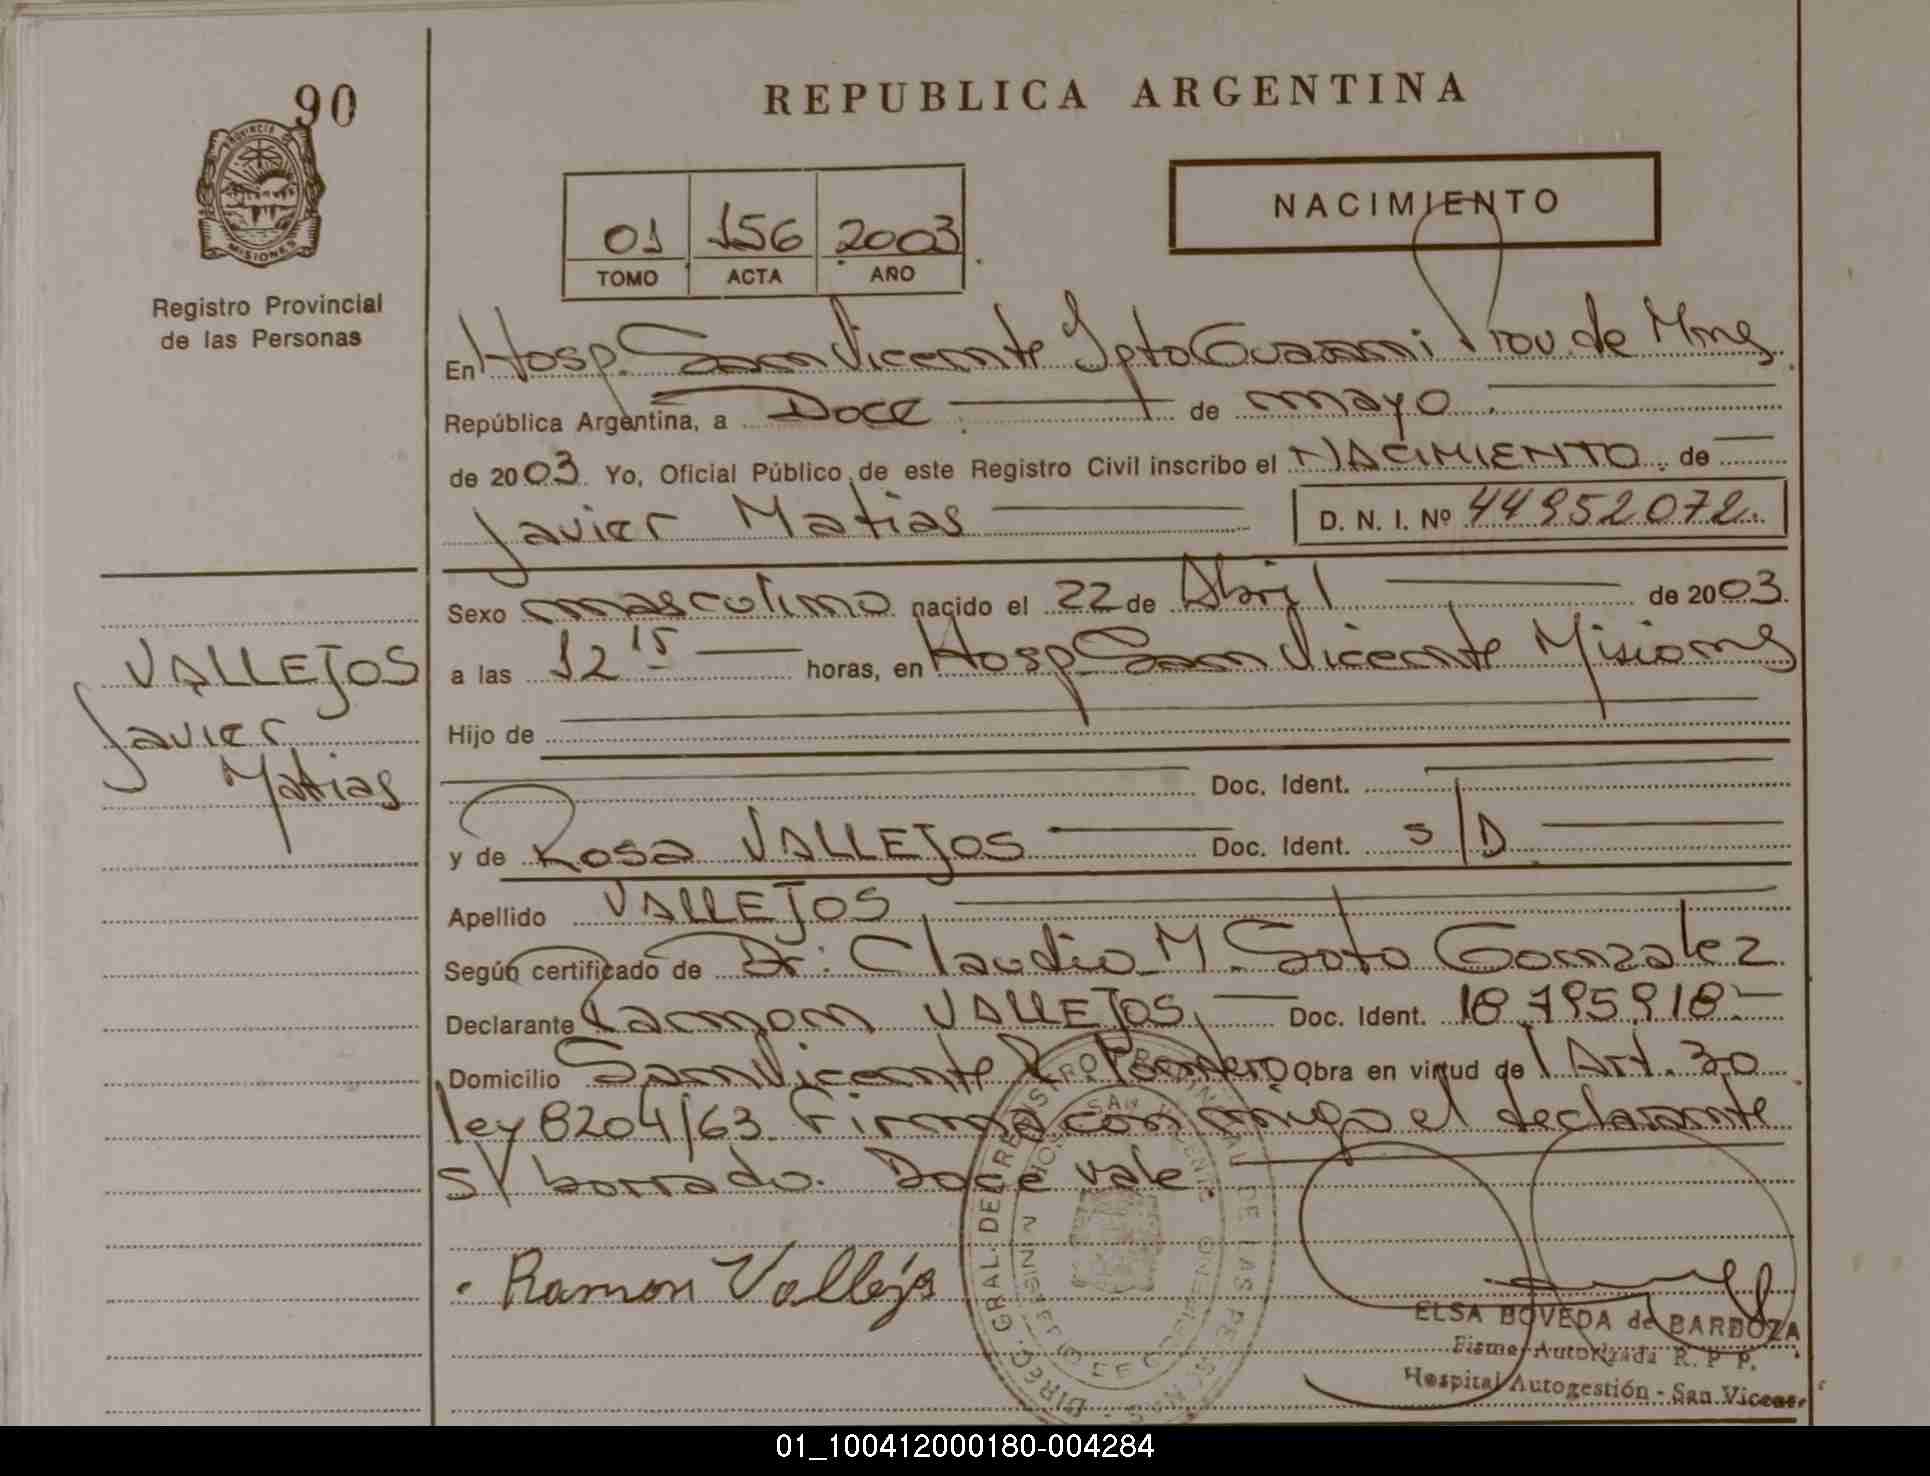 90
REPUBLICA ARGENTINA
PROVINCIA DE
MISIONES
Registro Provincial
de las Personas
01 156 2003
TOMO ACTA AÑO
NACIMIENTO
En Hosp. San Vicente Dpto Guarani Prov. de Mnes
República Argentina, a Doce de mayo
de 2003. Yo, Oficial Público de este Registro Civil inscribo el NACIMIENTO de
Javier Matias D. N. I. Nº 44952072.
Sexo masculino nacido el 22 de Abril de 2003.
a las 12 15 horas, en Hosp San Vicente Misiones
Hijo de
Doc. Ident.
y de Rosa VALLEJOS Doc. Ident. S/D
Apellido VALLEJOS
Según certificado de Dr: Claudio M. Soto Gonzalez
Declarante Ramon VALLEJOS Doc. Ident. 18.795.918
Domicilio San Vicente Obra en virtud de l Art. 30
ley 8204/63 Firma conmigo el declarante
s/ borrado. Doce vale.
VALLEJOS
Javier
Matias
Ramon Vallejos
ELSA BOVEDA de BARDOZA
Firma Autorizada R. P. P.
Hospital Autogestión - San Vicente
01_100412000180-004284